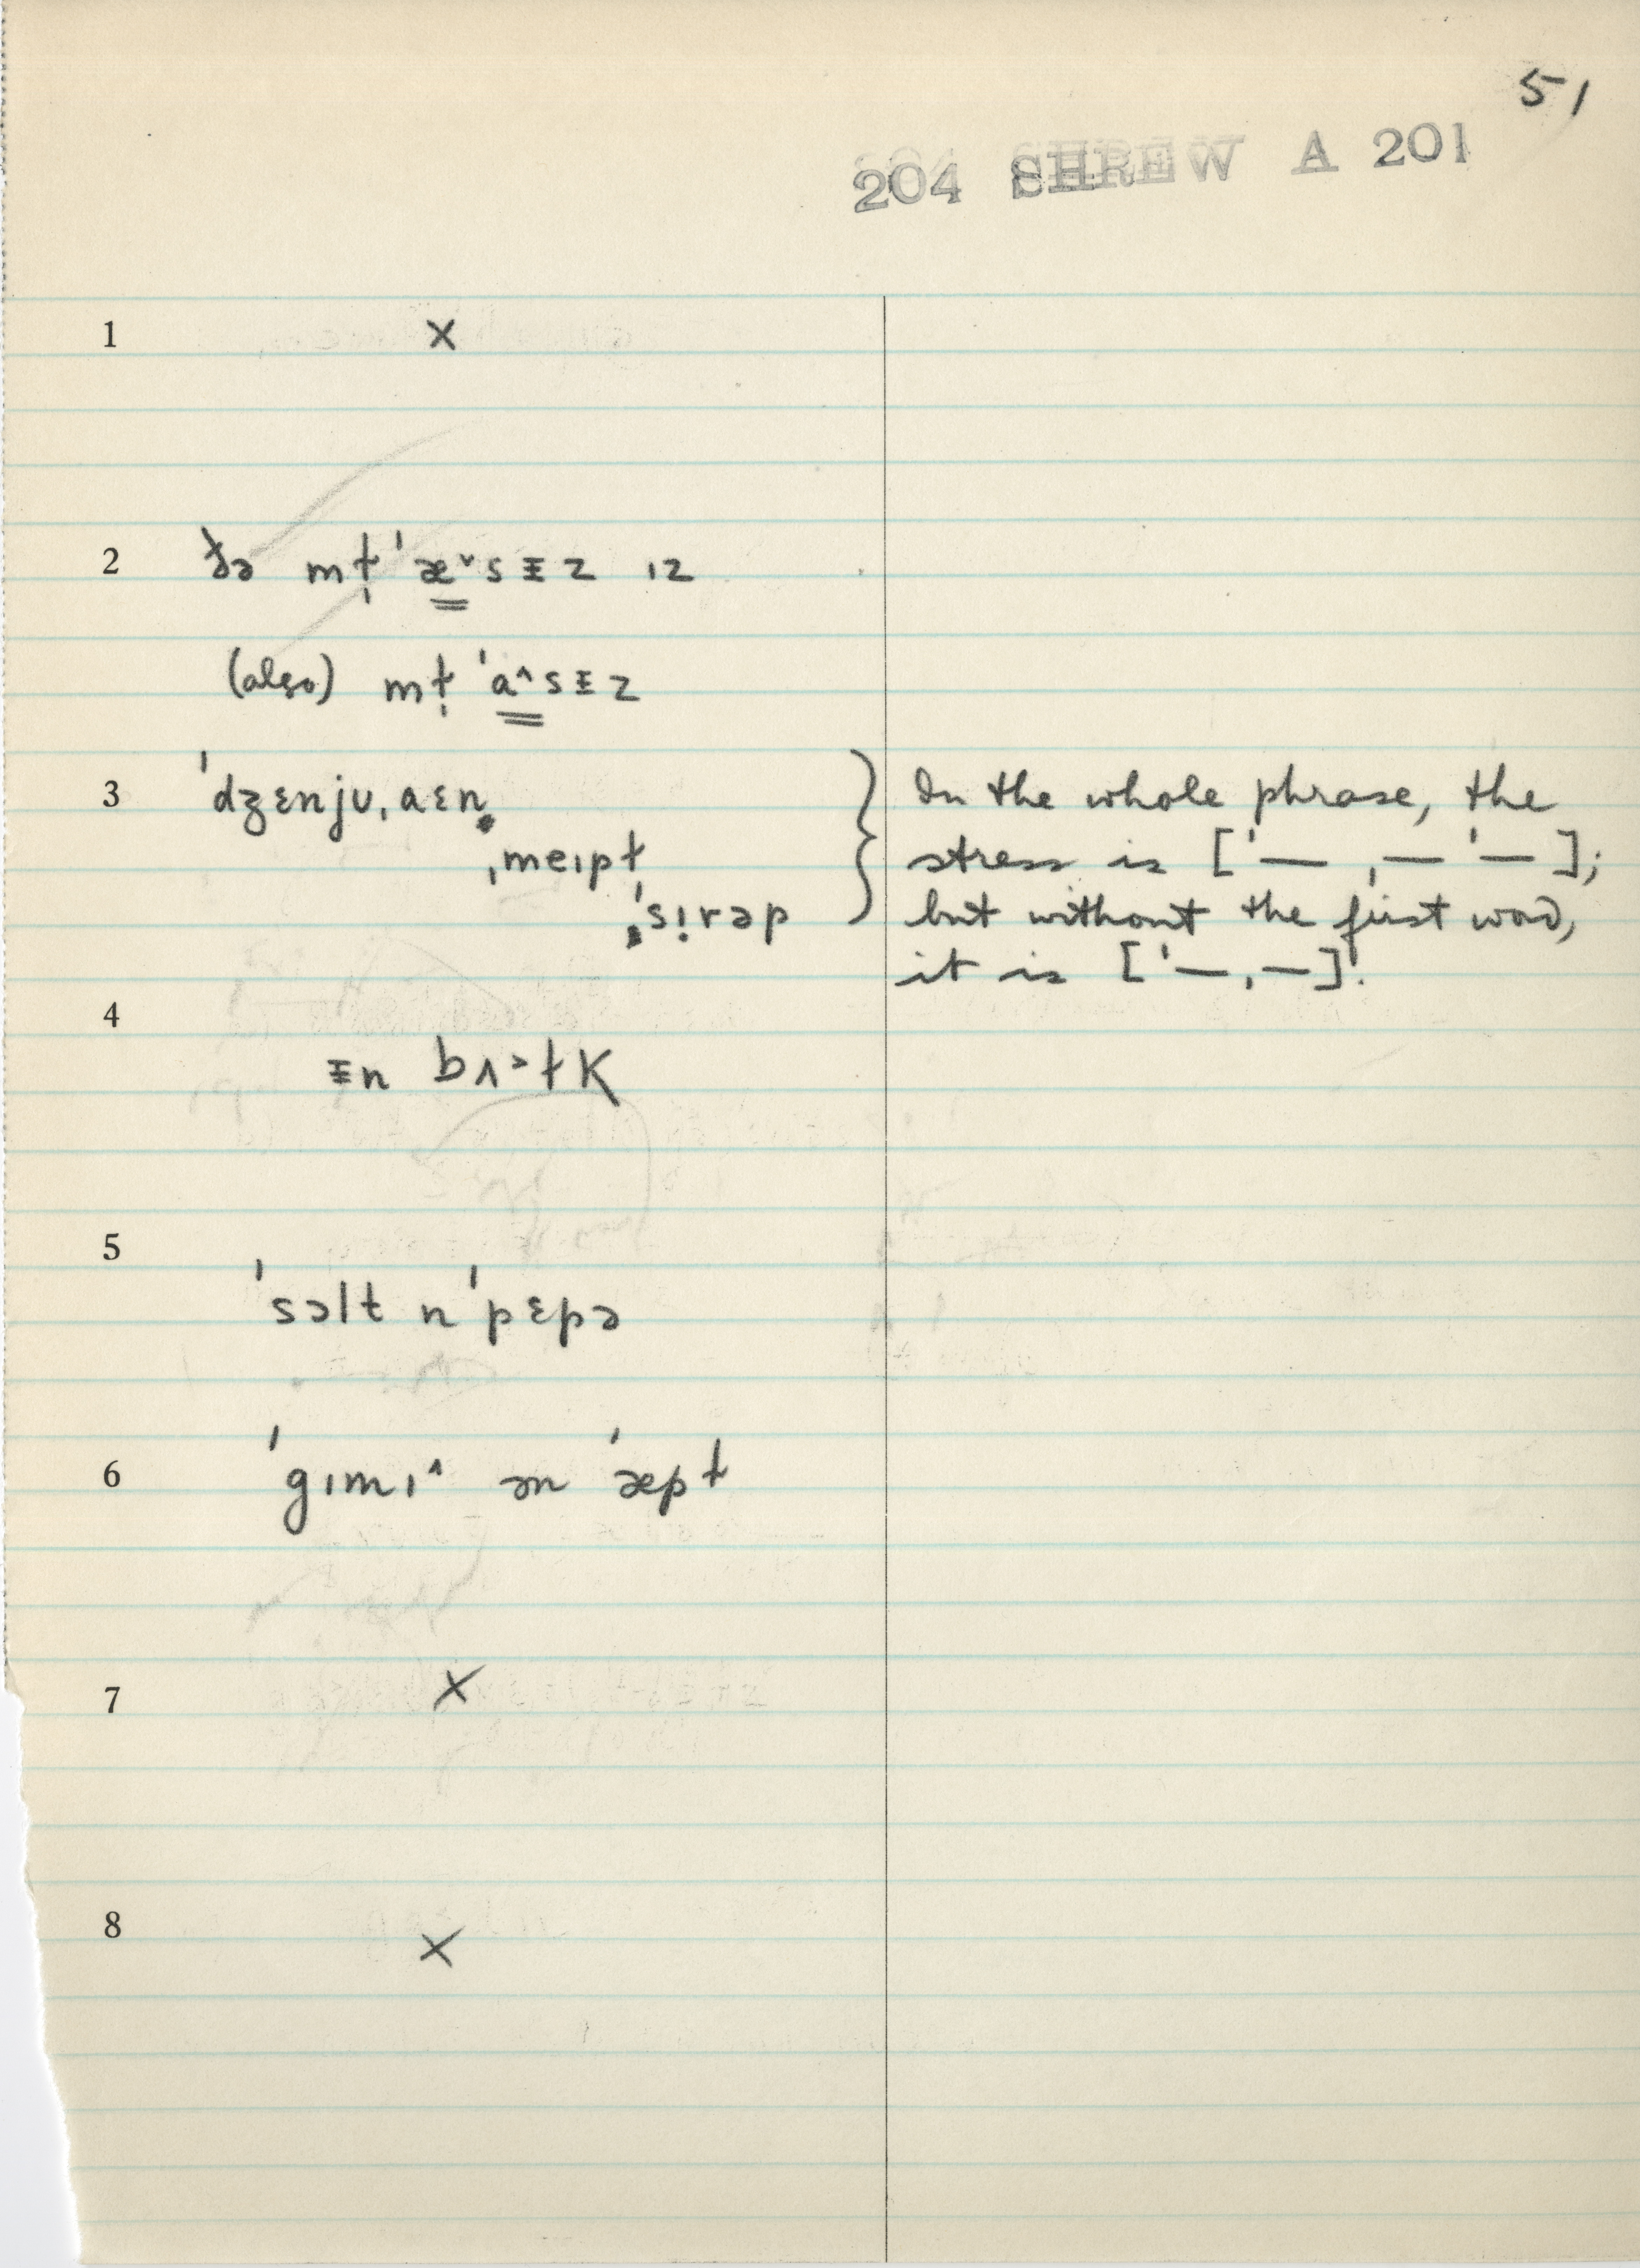 51
204 SHREW A 201
1 ×
2 ðə mɫ̩ ˈæ˅sᵻz ɪz
(also) mɫ̩ ˈa˄sᵻz
3 ˈdʒɛnjʊˌaɛn
ˌmeɪpɫ̩
ˈsi̩rəp
In the whole phrase, the
stress is [ˈ— ˌ— ˈ—];
but without the first word,
it is [ˈ—ˌ—].
4
ᵻn bʌ˃ɫK
5
ˈsɔlt n ˈpɛpə
6 ˈgɪmɪ˄ ən ˈæpɫ
7 ×
8 ×